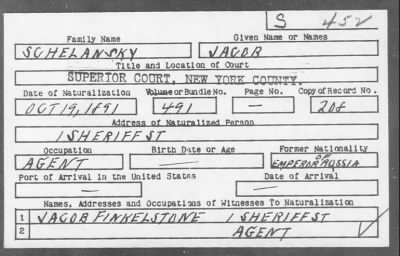 S 452
Family Name Given Name or Names
SCHELANSKY JACOB
Title and Location of Court
SUPERIOR COURT, NEW YORK COUNTY.
Date of Naturalization Volume or Bundle No. Page No. Copy of Record No.
OCT 19, 1891 491 — 208
Address of Naturalized Person
1 SHERIFF ST
Occupation Birth Date or Age Former Nationality
AGENT — EMPEROR OF RUSSIA
Port of Arrival in the United States Date of Arrival
— —
Names, Addresses and Occupations of Witnesses To Naturalization
1 JACOB FINKELSTONE 1 SHERIFF ST
2 AGENT